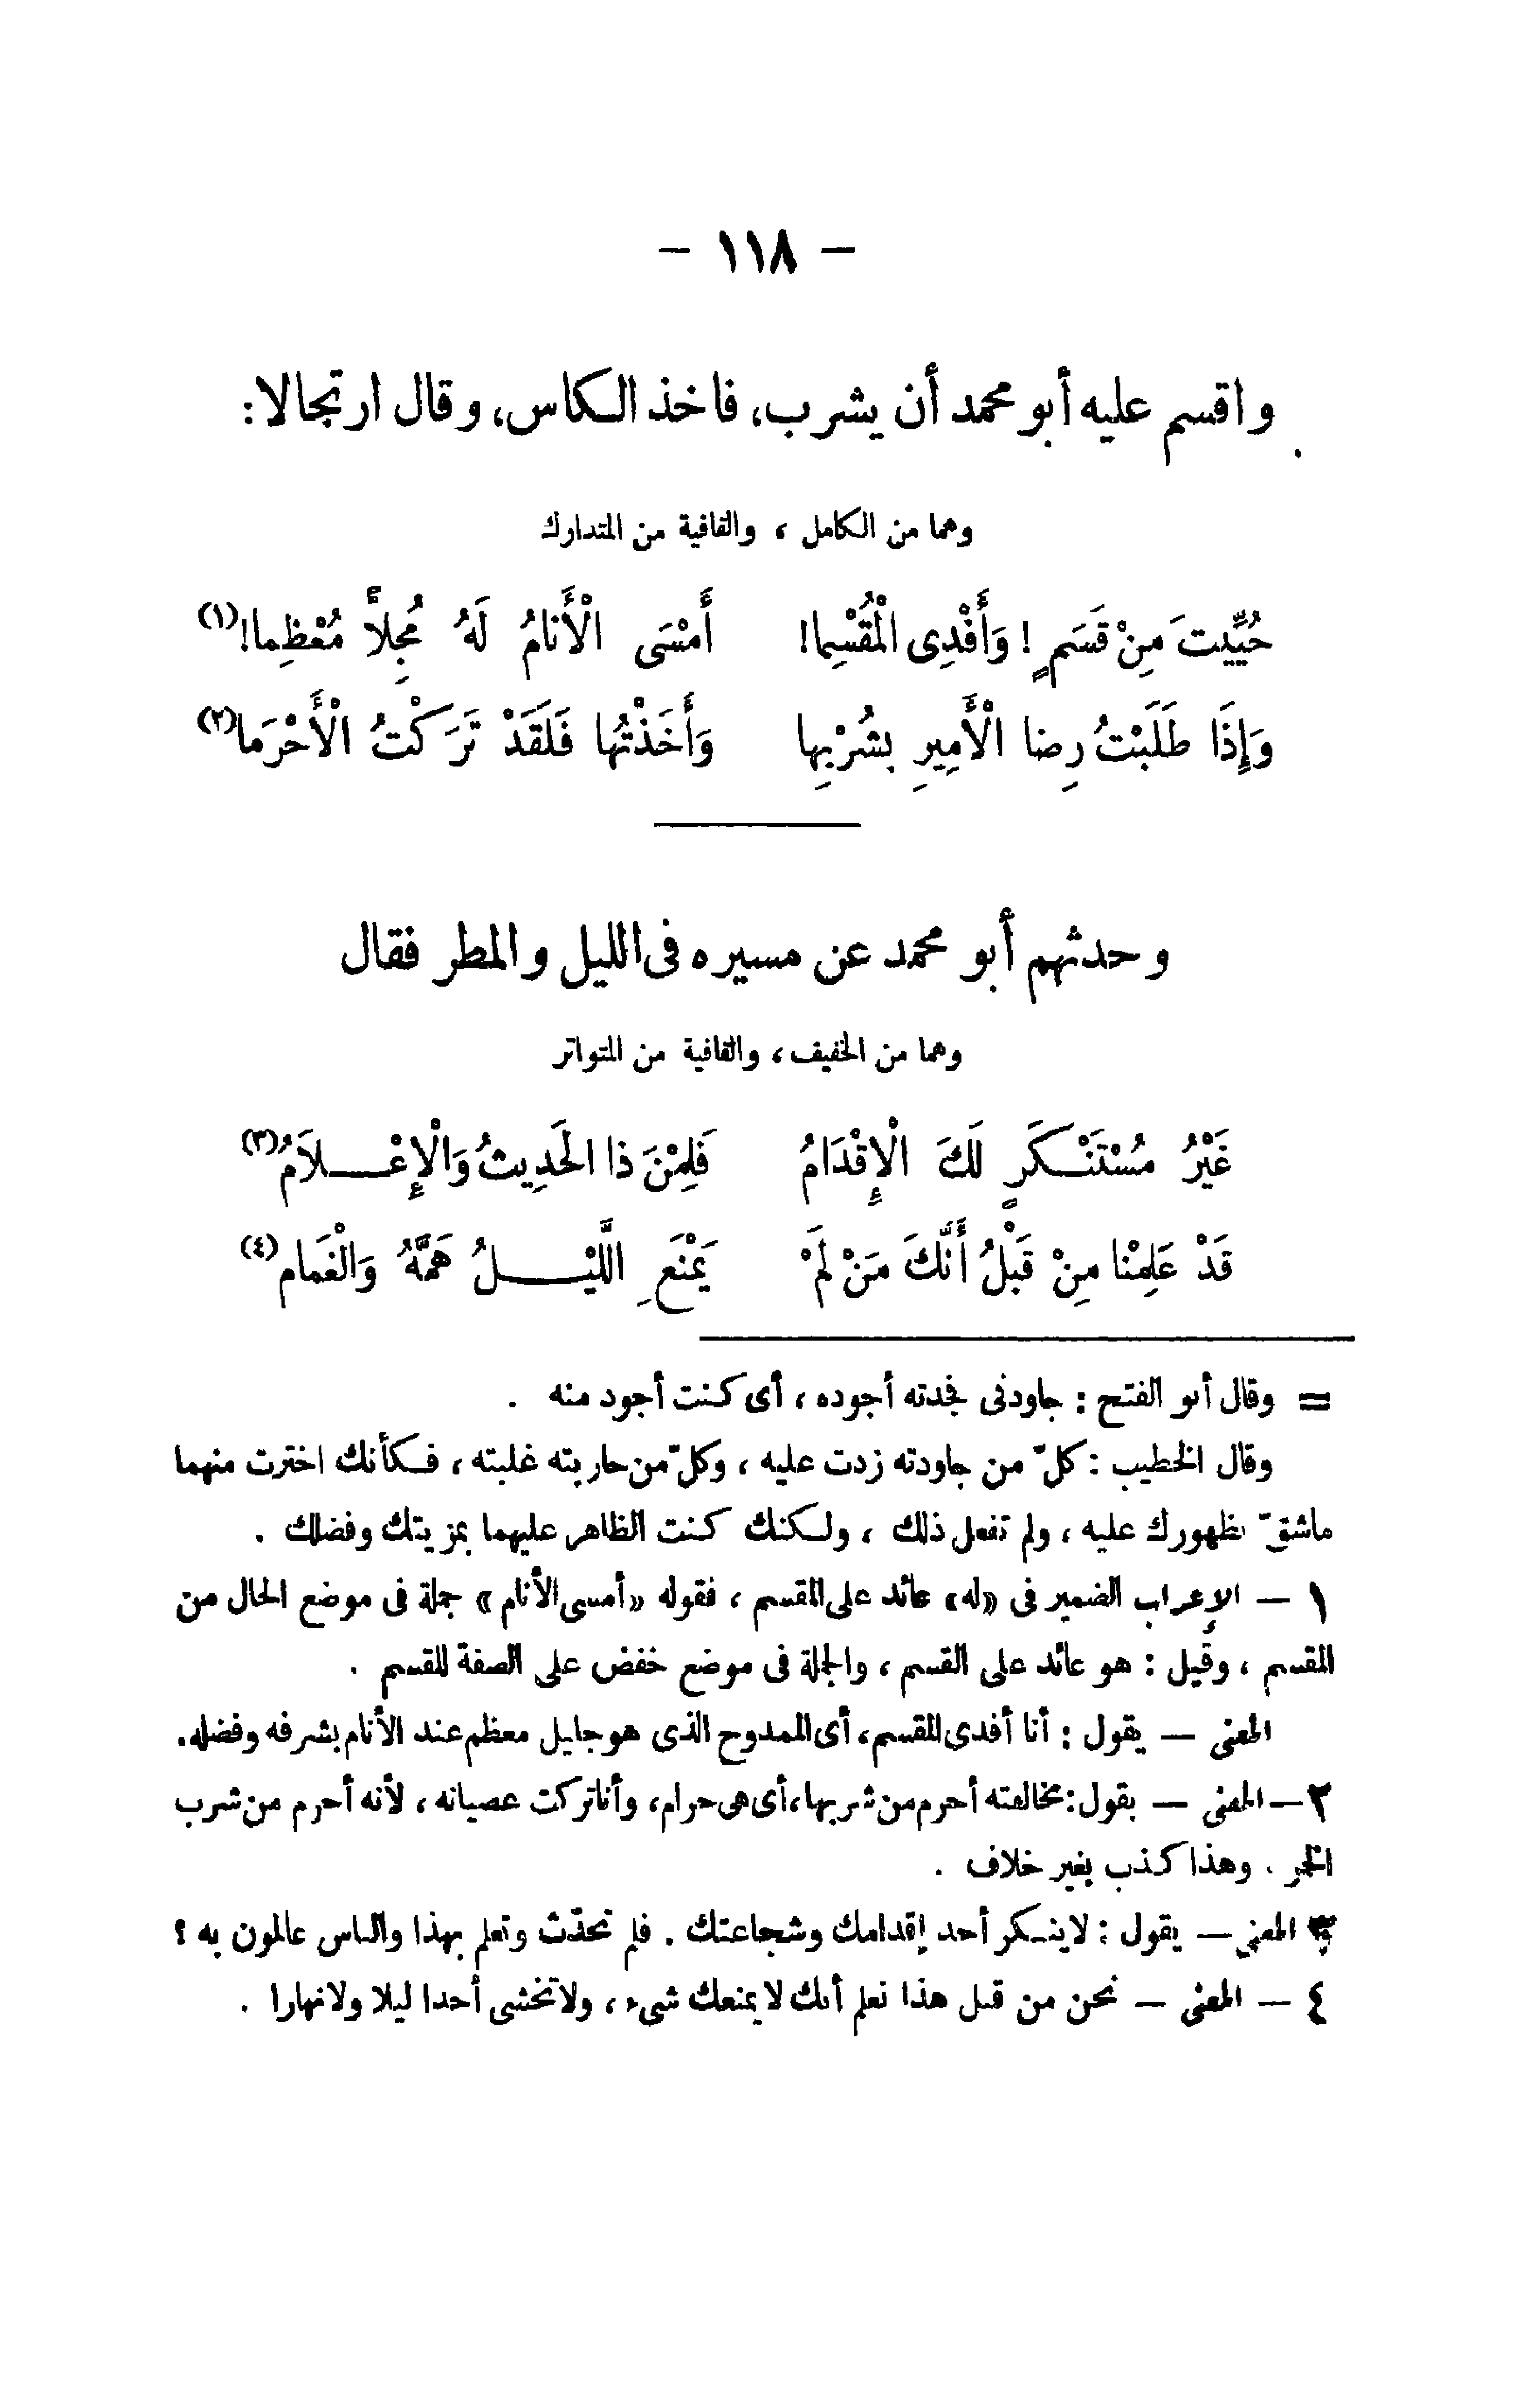 - ١١٨ -
واقسم عليه أبو محمد أن يشرب، فاخذ الكاس، وقال ارتجالا:
وهما من الكامل ، والقافية من المتدارك
حُيِّيتَ مِنْ قَسَمٍ ! وَأَفْدِى الْمُقْسِما! أَمْسَى الْأَنامُ لَهُ مُجِلاًّ مُعْظِما!(١)
وَإِذَا طَلَبْتُ رِضا الْأَمِيرِ بِشُرْبِها وَأَخَذْتُها فَلَقَدْ تَرَكْتُ الْأَحْرَما(٢)
وحدثهم أبو محمد عن مسيره فى الليل والمطر فقال
وهما من الخفيف ، والقافية من المتواتر
غَيْرُ مُسْتَنْكَرٍ لَكَ الْإِقْدَامُ فَلِمْنَ ذا الحَدِيثُ وَالْإِعْلاَمُ(٣)
قَدْ عَلِمْنا مِنْ قَبْلُ أَنَّكَ مَنْ لَمْ يَمْنَعِ اللَّيْلُ هَمَّهُ وَالْغَمام(٤)
= وقال أبو الفتح : جاودنى فجدته أجوده ، أى كنت أجود منه .
وقال الخطيب : كلّ من جاودته زدت عليه ، وكلّ من حاربته غلبته ، فكأنك اخترت منهما
ماشقّ ظهورك عليه ، ولم تفعل ذلك ، ولكنك كنت الظاهر عليهما بمزيتك وفضلك .
١ — الإعراب الضمير فى «له» عائد على المقسم ، فقوله «أمسى الأنام» جملة فى موضع الحال من
المقسم ، وقيل : هو عائد على القسم ، والجملة فى موضع خفض على الصفة للقسم .
المعنى — يقول : أنا أفدى المقسم ، أى الممدوح الذى هو جليل معظم عند الأنام بشرفه وفضله.
٢— المعنى — يقول : مخالفته أحرم من شربها ، أى هى حرام ، وأنا تركت عصيانه ، لأنه أحرم من شرب
الخمر . وهذا كذب بغير خلاف .
٣ المعنى — يقول : لاينكر أحد إقدامك وشجاعتك . فلم تحدّث وتعلم بهذا والناس عالمون به ؟
٤ — المعنى — نحن من قبل هذا نعلم أنك لا يمنعك شىء ، ولا تخشى أحدا ليلا ولا نهارا .